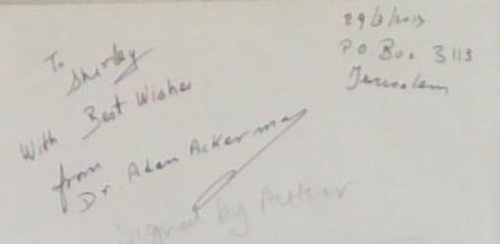 To
Shirley
With Best Wishes
from
Dr. Adam Ackerman
29/8/2013
P O Box 3113
Jerusalem
signed by Author